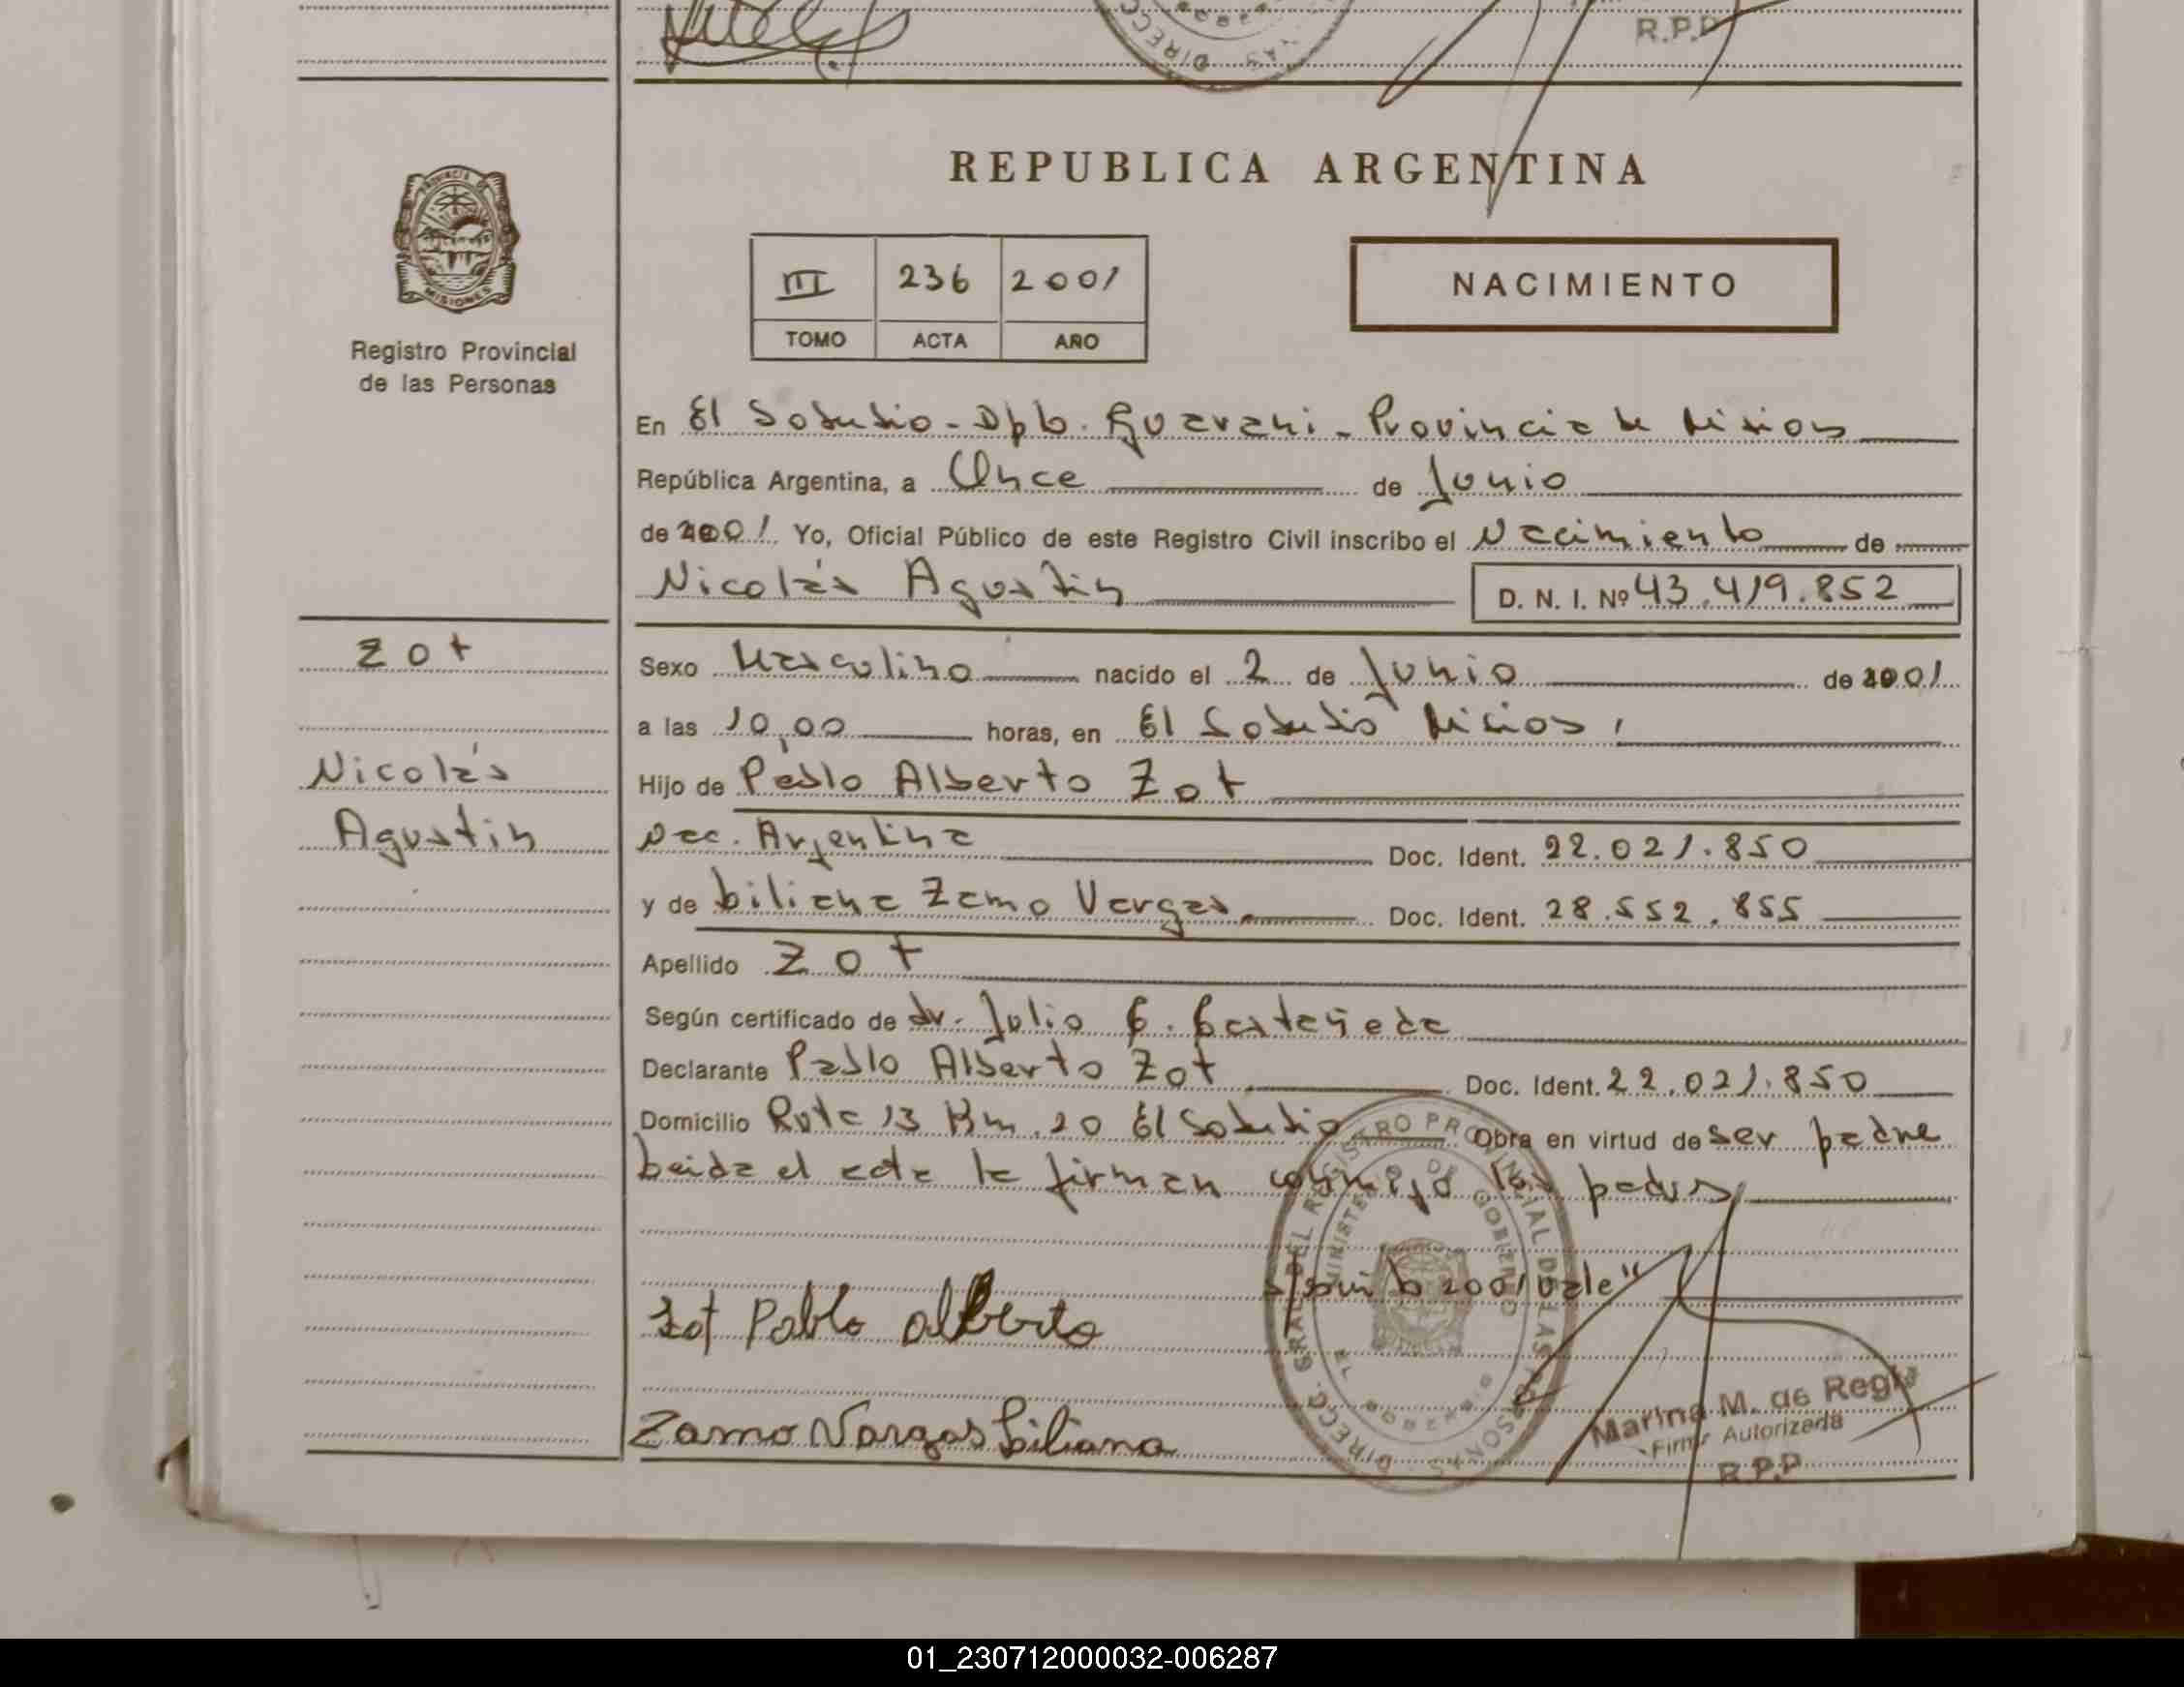 R.P.P
REPUBLICA ARGENTINA
PROVINCIA DE
MISIONES
Registro Provincial
de las Personas
III 236 2001
TOMO ACTA AÑO
NACIMIENTO
En El Soberbio - Dpto. Guarani - Provincia de Misiones
República Argentina, a Once de Junio
de 2001. Yo, Oficial Público de este Registro Civil inscribo el Nacimiento de
Nicolás Agustin D. N. I. Nº 43.419.852
Zot
Nicolás
Agustin
Sexo Masculino nacido el 2 de Junio de 2001
a las 10,00 horas, en El Soberbio Misiones
Hijo de Pablo Alberto Zot
Nac. Argentina Doc. Ident. 22.021.850
y de Liliana Zamo Vargas Doc. Ident. 28.552.855
Apellido Zot
Según certificado de dr. Julio C. Castañeda
Declarante Pablo Alberto Zot Doc. Ident. 22.021.850
Domicilio Ruta 13 Km. 20 El Soberbio Obra en virtud de ser padre
Leida el acta la firman conmigo los padres
2001 vale"
Zot Pablo Alberto
Zamo Vargas Liliana
DIRECC. GRAL. DEL REGISTRO PROVINCIAL DE LAS PERSONAS
MINISTERIO DE GOBIERNO
Marina M. de Regis
Firma Autorizada
R.P.P
01_230712000032-006287